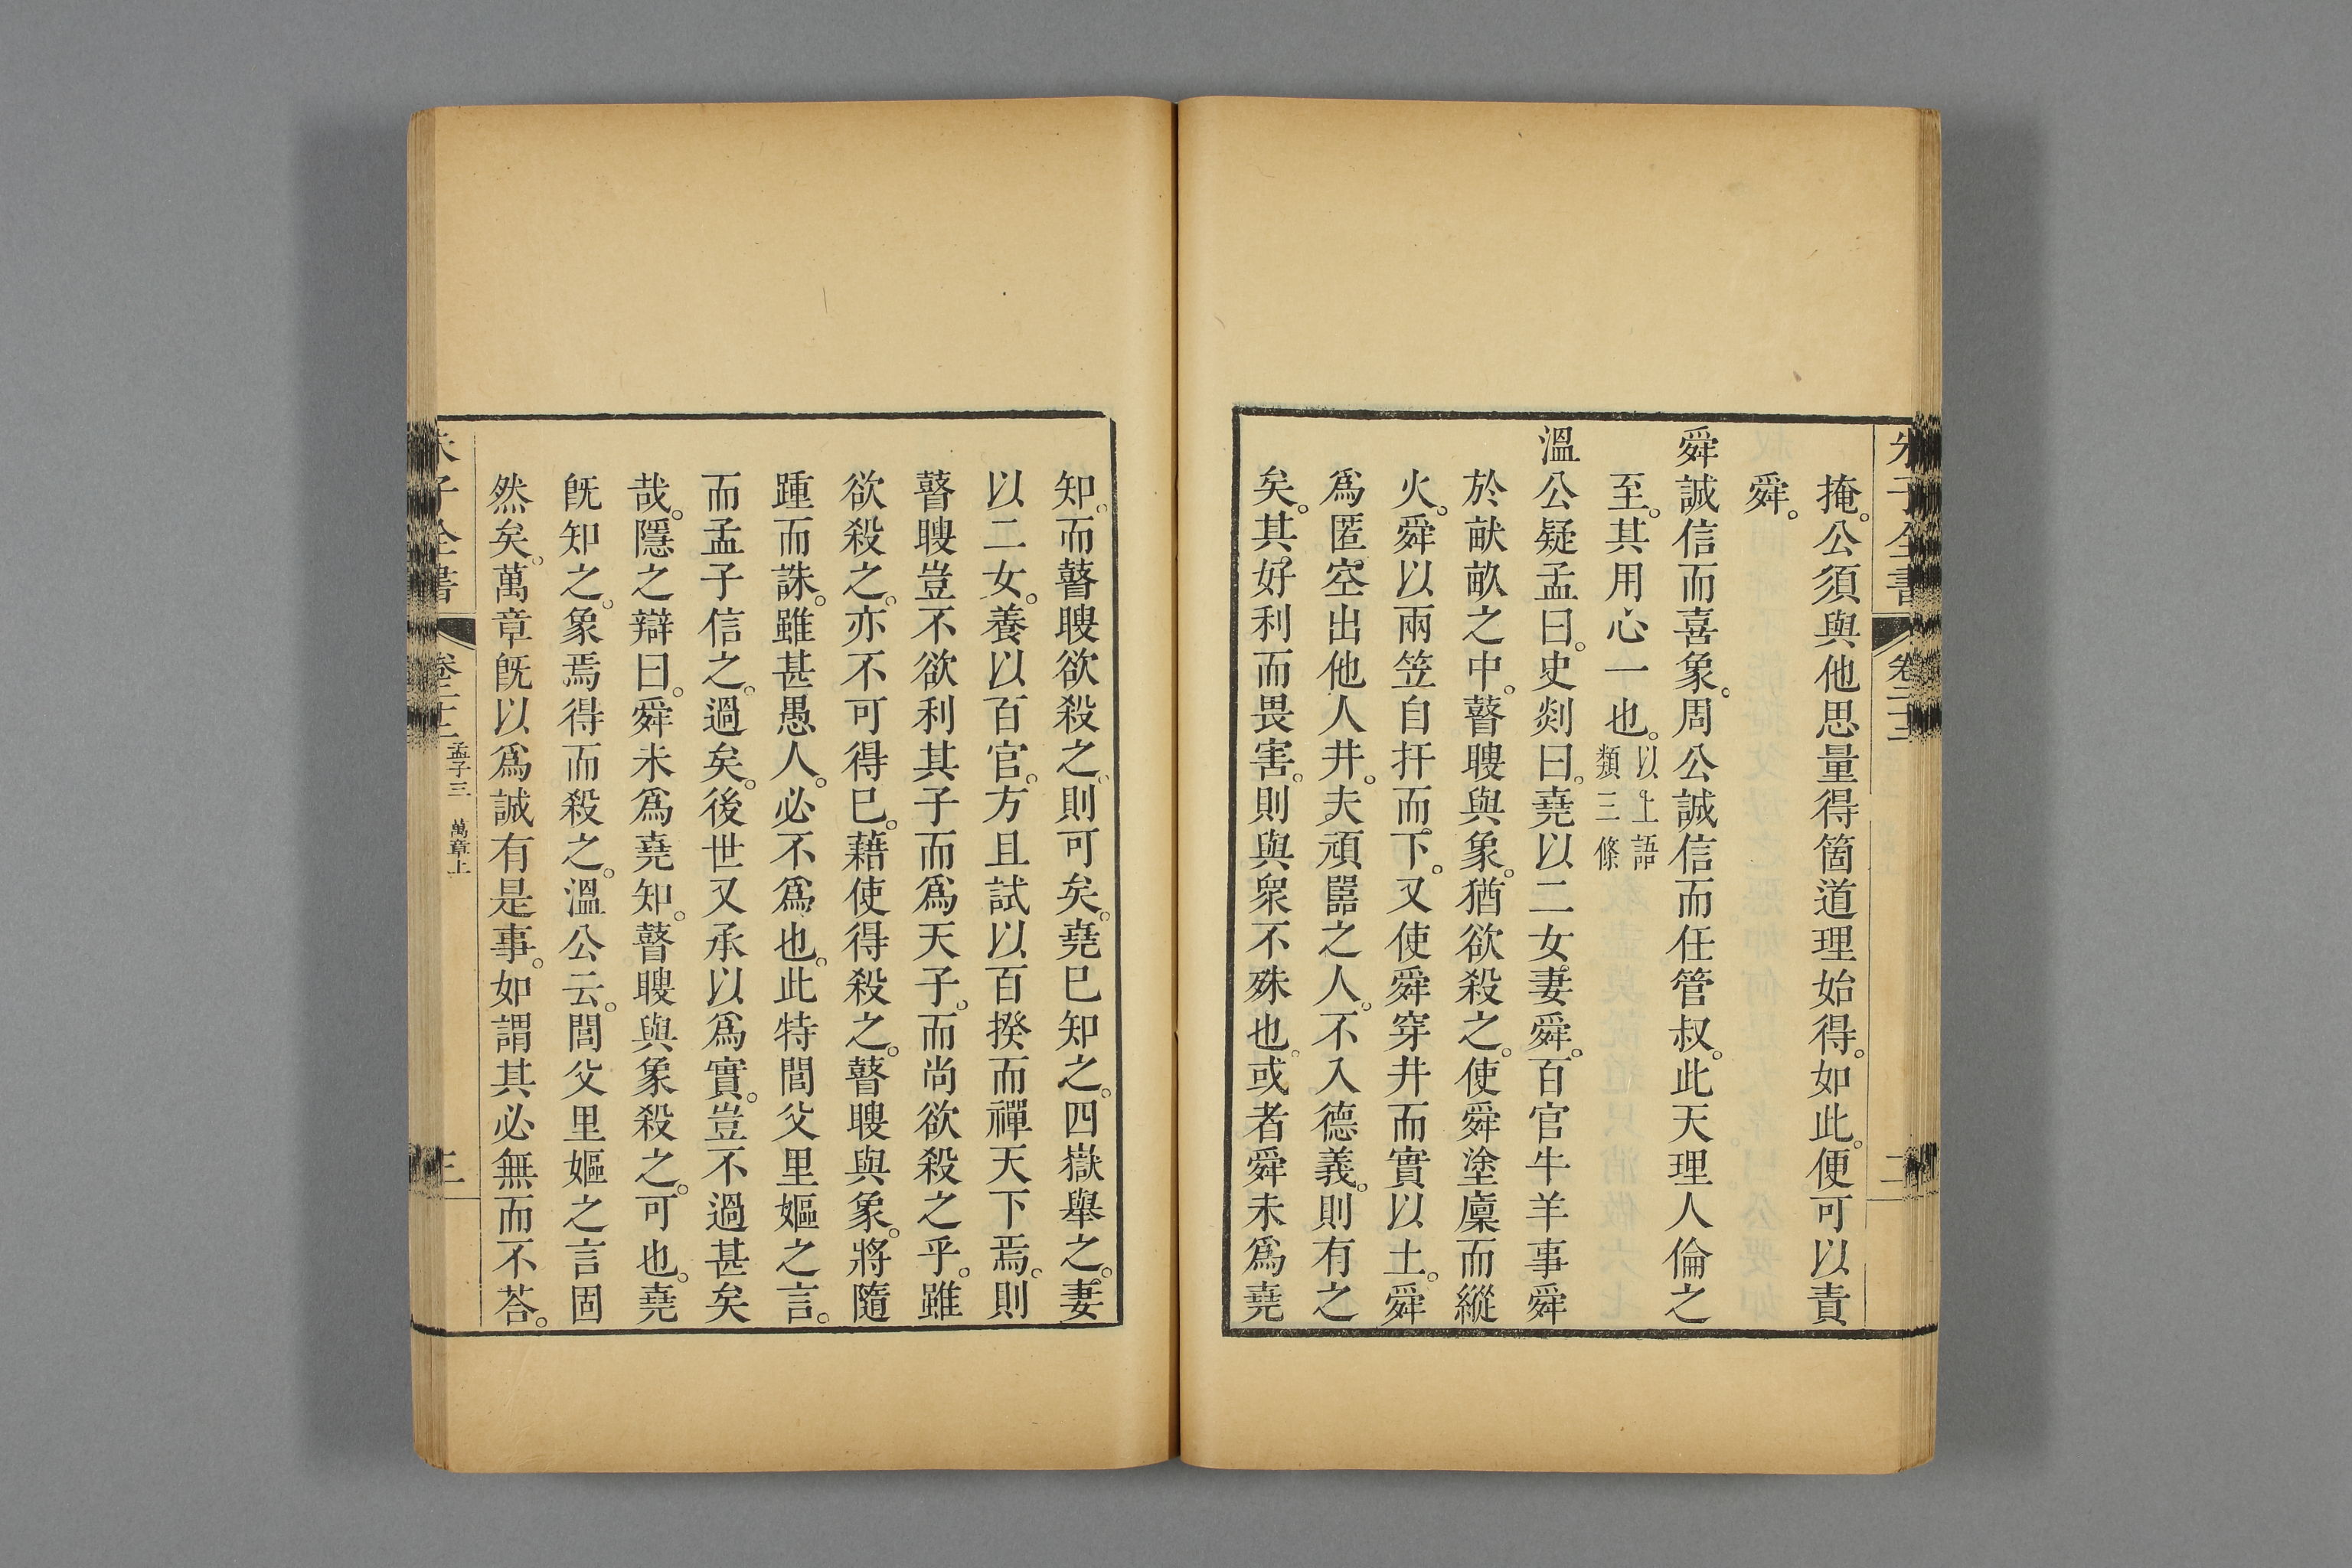 朱子全書 卷二十三 二
掩。公須與他思量得箇道理始得。如此。便可以責
舜。
舜誠信而喜象。周公誠信而任管叔。此天理人倫之
至。其用心一也。以上語類三條
溫公疑孟曰。史剡曰。堯以二女妻舜。百官牛羊事舜
於畎畝之中。瞽瞍與象。猶欲殺之。使舜塗廩而縱
火。舜以兩笠自扞而下。又使舜穿井而實以土。舜
爲匿空出他人井。夫頑嚚之人。不入德義。則有之
矣。其好利而畏害。則與衆不殊也。或者舜未爲堯
知。而瞽瞍欲殺之。則可矣。堯已知之。四嶽舉之。妻
以二女。養以百官。方且試以百揆而禪天下焉。則
瞽瞍豈不欲利其子而爲天子。而尚欲殺之乎。雖
欲殺之。亦不可得已。藉使得殺之。瞽瞍與象。將隨
踵而誅。雖甚愚人。必不爲也。此特閭父里嫗之言。
而孟子信之。過矣。後世又承以爲實。豈不過甚矣
哉。隱之辯曰。舜未爲堯知。瞽瞍與象殺之。可也。堯
旣知之。象焉得而殺之。溫公云。閭父里嫗之言固
然矣。萬章旣以爲誠有是事。如謂其必無而不荅。
朱子全書 卷二十三 孟子三 萬章上 三